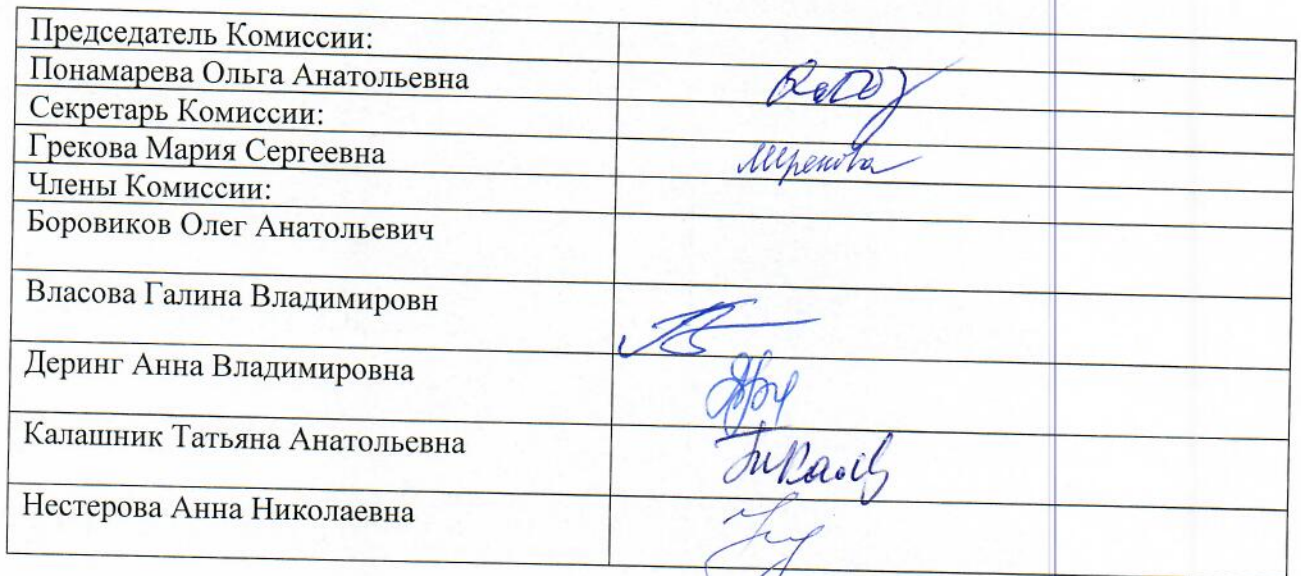 Председатель Комиссии:
Понамарева Ольга Анатольевна
Секретарь Комиссии:
Грекова Мария Сергеевна
Члены Комиссии:
Боровиков Олег Анатольевич
Власова Галина Владимировн
Деринг Анна Владимировна
Калашник Татьяна Анатольевна
Нестерова Анна Николаевна